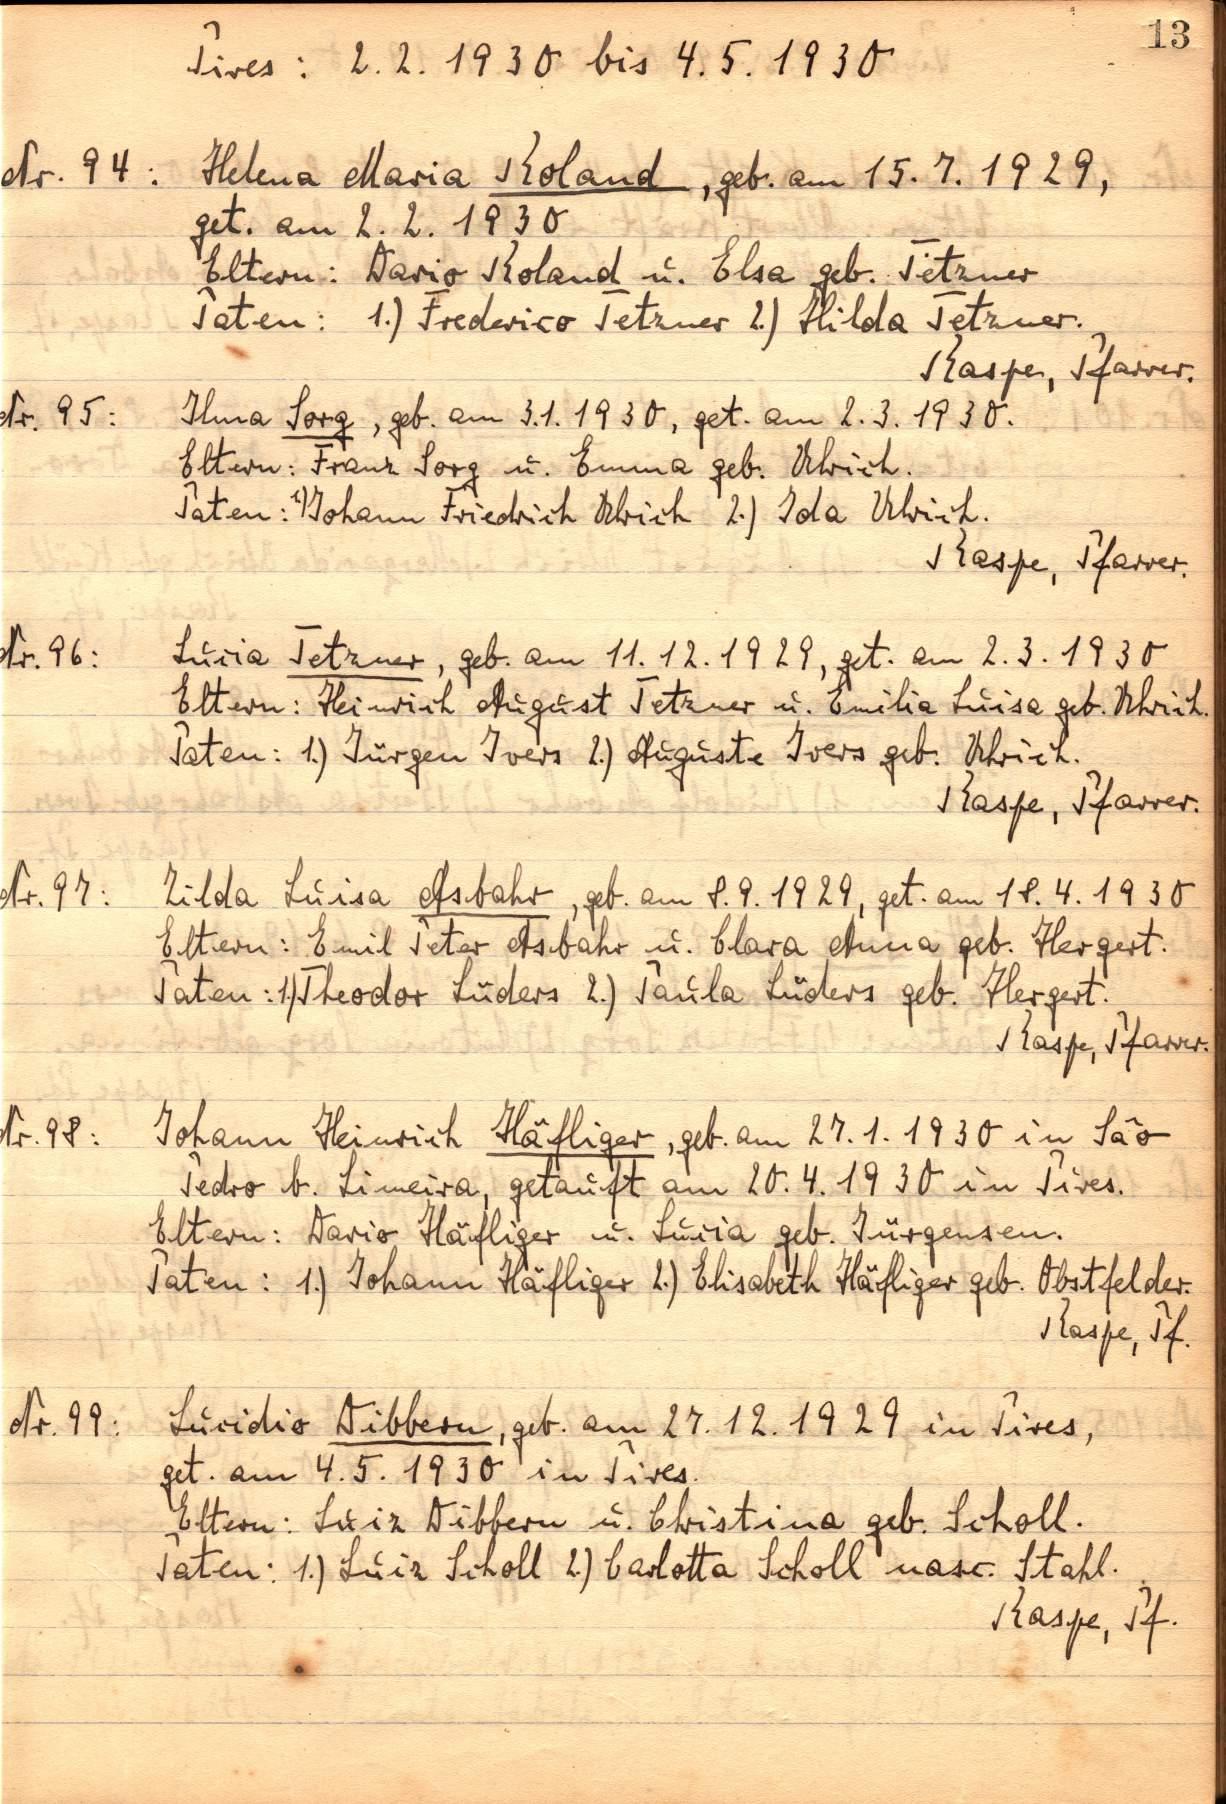 13
Pires: 2.2.1930 bis 4.5.1930
Nr. 94: Helena Maria Roland, geb. am 15.7.1929,
get. am 2.2.1930
Eltern: Dario Roland u. Elsa geb. Tetzner
Paten: 1.) Frederico Tetzner 2.) Hilda Tetzner.
Raspe, Pfarrer.
Nr. 95: Ilma Sorg, geb. am 3.1.1930, get. am 2.3.1930.
Eltern: Franz Sorg u. Emma geb. Ulrich.
Paten: 1.) Johann Friedrich Ulrich 2.) Ida Ulrich.
Raspe, Pfarrer.
Nr. 96: Lucia Tetzner, geb. am 11.12.1929, get. am 2.3.1930
Eltern: Heinrich August Tetzner u. Emilia Luisa geb. Ulrich.
Paten: 1.) Jürgen Ivers 2.) Auguste Ivers geb. Ulrich.
Raspe, Pfarrer.
Nr. 97: Zilda Luisa Asbahr, geb. am 8.9.1929, get. am 18.4.1930
Eltern: Emil Peter Asbahr u. Clara Anna geb. Hergert.
Paten: 1.) Theodor Lüders 2.) Paula Lüders geb. Hergert.
Raspe, Pfarrer.
Nr. 98: Johann Heinrich Häfliger, geb. am 27.1.1930 in São
Pedro b. Limeira, getauft am 20.4.1930 in Pires.
Eltern: Dario Häfliger u. Lucia geb. Jürgensen.
Paten: 1.) Johann Häfliger 2.) Elisabeth Häfliger geb. Obstfelder.
Raspe, Pf.
Nr. 99: Lucidio Dibbern, geb. am 27.12.1929 in Pires,
get. am 4.5.1930 in Pires.
Eltern: Luiz Dibbern u. Christina geb. Scholl.
Paten: 1.) Luiz Scholl 2.) Carlotta Scholl nasc. Stahl.
Raspe, Pf.